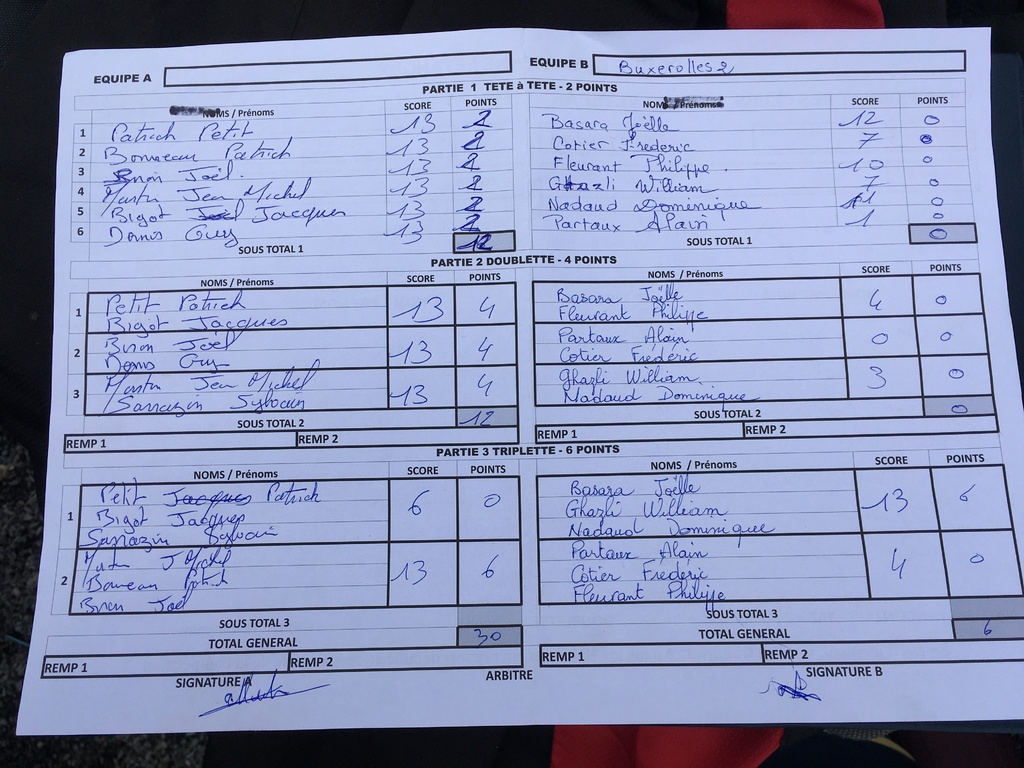 EQUIPE A EQUIPE B Buxerolles 2
PARTIE 1 TETE à TETE - 2 POINTS
NOMS / Prénoms SCORE POINTS NOM / Prénoms SCORE POINTS
1 Patrich Petit 13 2 Basara Joëlle 12 0
2 Bonneau Patrich 13 2 Cotier Frederic 7 0
3 Brion Joël. 13 2 Fleurant Philippe. 10 0
4 Martin Jean Michel 13 2 Ghazli William 7 0
5 Bigot Jacques 13 2 Nadaud Dominique 11 0
6 Denis Guy 13 2 Partaux Alain 1 0
SOUS TOTAL 1 12 SOUS TOTAL 1 0
PARTIE 2 DOUBLETTE - 4 POINTS
NOMS / Prénoms SCORE POINTS NOMS / Prénoms SCORE POINTS
1 Petit Patrich 13 4 Basara Joëlle 4 0
Bigot Jacques Fleurant Philippe
2 Brion Joël 13 4 Partaux Alain 0 0
Denis Guy Cotier Fréderic
3 Martin Jean Michel 13 4 Ghazli William 3 0
Sarrazin Sylvain Nadaud Dominique
SOUS TOTAL 2 12 SOUS TOTAL 2 0
REMP 1 REMP 2 REMP 1 REMP 2
PARTIE 3 TRIPLETTE - 6 POINTS
NOMS / Prénoms SCORE POINTS NOMS / Prénoms SCORE POINTS
1 Petit Jacques Patrich 6 0 Basara Joëlle 13 6
Bigot Jacques Ghazli William
Sarrazin Sylvain Nadaud Dominique
2 Martin J Michel 13 6 Partaux Alain 4 0
Bonneau Patrich Cotier Fréderic
Brion Joël Fleurant Philippe
SOUS TOTAL 3 SOUS TOTAL 3
TOTAL GENERAL 30 TOTAL GENERAL 6
REMP 1 REMP 2 REMP 1 REMP 2
SIGNATURE A ARBITRE SIGNATURE B